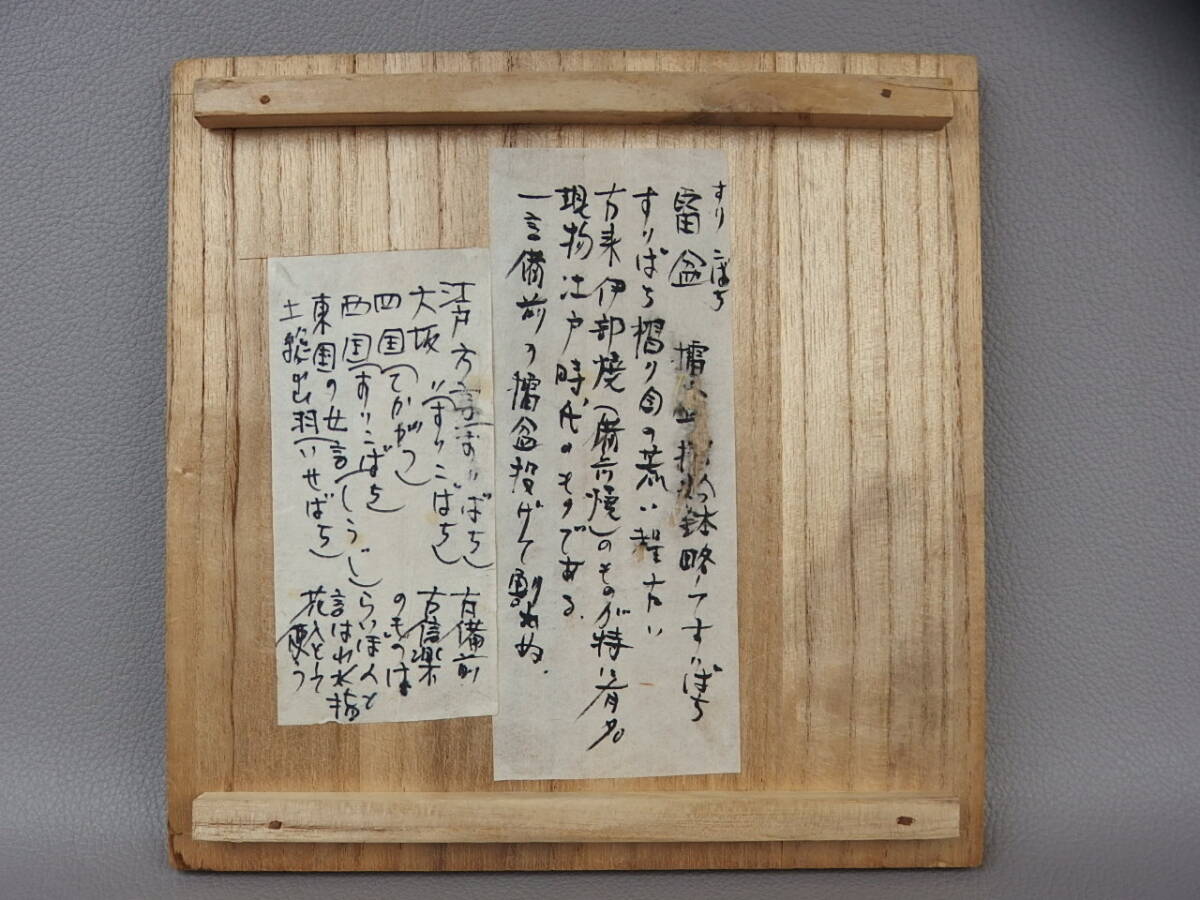 すりこばち
擂盆 擂 鉢略してすりばち
すりばち摺り目の荒い程古い
古来伊部焼(備前焼)のものが特に有名
現物江戸時代のものである。
一言備前の擂盆投げて割れぬ。
江戸方言(すりばち)
大坂〃(すりこばち)
四国(てかがつ)
西国(すりこばち)
東国の女言(しうじ)
土総出羽(いせばち)
古備前
古信楽
のものは
らいぼんと
言はれ水指
花入として
使う